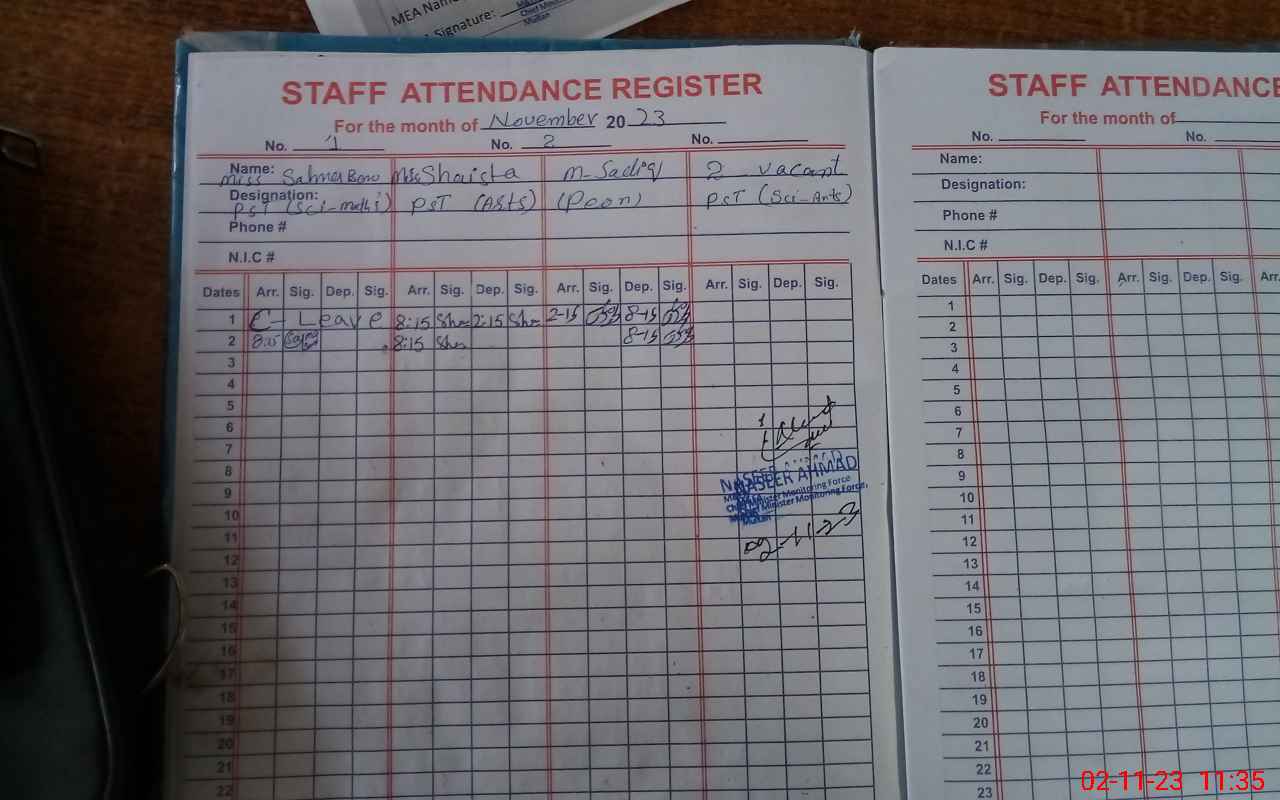 MEA Name
Signature:
Multan
STAFF ATTENDANCE REGISTER
For the month of November 20 23
No. 1 No. 2 No.
Name: Miss Salma Bano Miss Shaista M-Sadiq 2 vacant
Designation: PST (Sci-math) PST (Arts) (Peon) PST (Sci-Arts)
Phone #
N.I.C #
Dates Arr. Sig. Dep. Sig. Arr. Sig. Dep. Sig. Arr. Sig. Dep. Sig. Arr. Sig. Dep. Sig.
1 C-Leave 8:15 Sha 2:15 Sha 2-15 8-15
2 8:15 8:15 Sha 8-15
3
4
5
6
7
8
9
10
11
12
13
14
15
16
17
18
19
20
21
22
NASEER AHMAD
Chief Minister Monitoring Force,
Multan
02-11-23
STAFF ATTENDANCE
For the month of
No. No.
Name:
Designation:
Phone #
N.I.C #
Dates Arr. Sig. Dep. Sig. Arr. Sig. Dep. Sig. Arr.
1
2
3
4
5
6
7
8
9
10
11
12
13
14
15
16
17
18
19
20
21
22
23
02-11-23 11:35